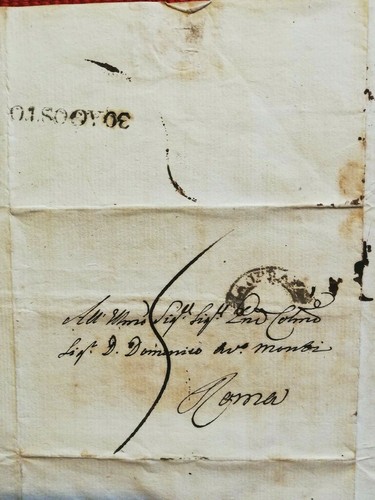 30 AGOSTO
All' Illmo Sigr. Sigr. Pne Colmo
Sigr. D. Domenico Avo. Monti
Roma